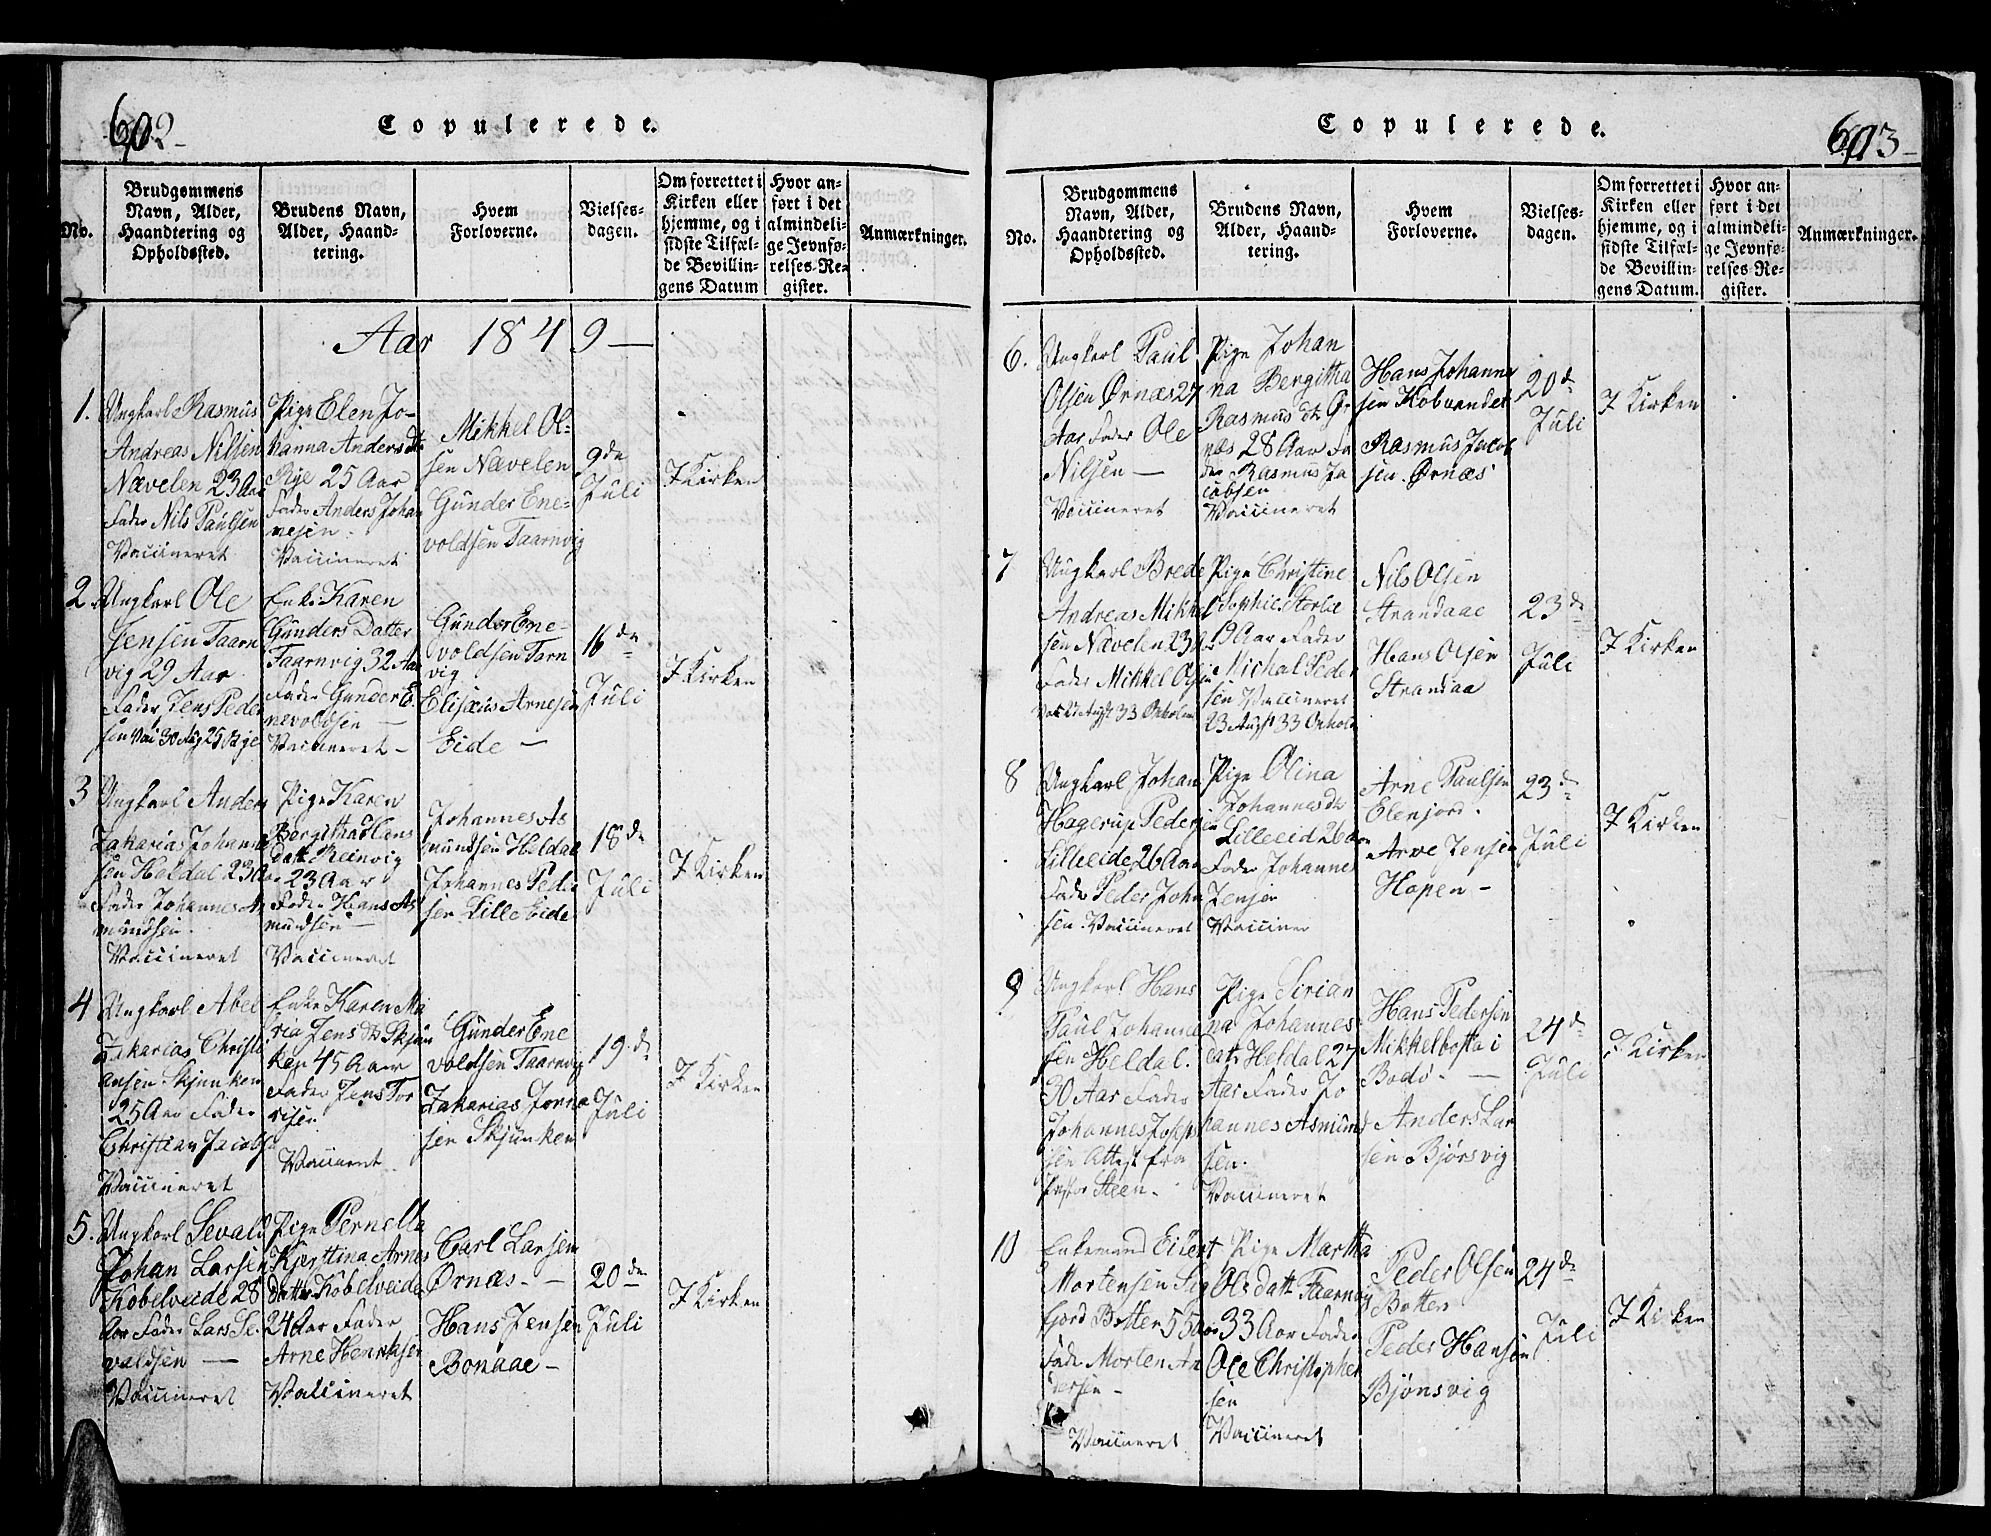 602
Copulerede.
No.
Brudgommens
Navn, Alder,
Haandtering og
Opholdssted.
Brudens Navn,
Alder, Haand-
tering.
Hvem
Forloverne.
Vielses-
dagen.
Om forrettet i
Kirken eller
hjemme, og i
sidste Tilfæl-
de Bevillin-
gens Datum
Hvor an-
ført i det
almindeli-
ge Jevnfø-
relses-Re-
gister.
Anmærkninger.
Aar 1849 —
1.
Ungkarl Rasmus
Andreas Nilsen
Nævelen 23 Aar
Fader Nils Paulsen
Vaccineret
Pige Elen Jo-
hanna Anders dtr
Rye 25 Aar
Fader Anders Johan
nesen.
Vaccineret
Mikkel Ol-
sen Nævelen
Gunder Ene-
voldsen Taarnvig
9de
Juli
I Kirken
2.
Ungkarl Ole
Jensen Taarn
vig 29 Aar
Fader Jens Peder
sen Vac 30 Aug 25
Enke Karen
Gunders Datter
Taarnvig 32 Aar
Fader Gunder E-
nevoldsen —
Vaccineret -
Gunder Ene-
voldsen Tarn
vig.
Elisæus Arnesen
Eide —
16de
Juli
I Kirken
3
Ungkarl Anders
Zakarias Johanne
sen Heldal 23 Aar
Fader Johannes As
mundsen.
Vaccineret
Pige Karen
Bergitha Hans
datt. Reinvig
23 Aar
Fader Hans As
mundsen —
Vaccineret
Johannes As
mundsen Heldal
Johannes Peder
sen Lille Eide
18de
Juli
I Kirken
4
Ungkarl Abel
Zakarias Christi
ansen Skjunken
25 Aar Fader
Christian Jacobs
Vaccineret
Enke Karen Ma
ria Jens dtr Skjun
ken 45 Aar
Fader Jens Tor
risen
Vaccineret
Gunder Ene
voldsen Taarnvig
Zakarias Jonna
sen Skjunken
19.de
Juli
I Kirken
5.
Ungkarl Sevald
Johan Larsen
Kobelveide 28
Aar Fader Lars Se-
valdsen —
Vaccineret
Pige Pernella
Kjerstina Arnes
datter Kobelveide
24 Aar Fader
Arne Henriksen
Vaccineret
Carl Larsen
Ørnæs. —
Hans Jensen
Bonaae —
20de
Juli
I Kirken
603
Copulerede.
No.
Brudgommens
Navn, Alder,
Haandtering og
Opholdssted.
Brudens Navn,
Alder, Haand-
tering.
Hvem
Forloverne.
Vielses-
dagen.
Om forrettet i
Kirken eller
hjemme, og i
sidste Tilfæl-
de Bevillin-
gens Datum.
Hvor an-
ført i det
almindeli-
ge Jevnfø-
relses-Re-
gister.
Anmærkninger.
6.
Ungkarl Paul
Olsen Ørnæs 27
Aar Fader Ole
Nilsen —
Vaccineret
Pige Johan
na Bergitha
Rasmus dtr Ør
næs 28 Aar Fa
der Rasmus Ja
cobsen
Vaccineret
Hans Johanne
sen Kobvandet
Rasmus Jacob
sen. Ørnæs
20de
Juli
I Kirken
7
Ungkarl Brede
Andreas Mikkel
sen Nævelen 23 A
Fader Mikkel Olsen
Pige Christine
Sophie Storlie
19 Aar Fader
Michal Peder
sen Vaccineret
23 Augst 33
Nils Olsen
Strandaae
Hans Olsen
Strandaa
23de
Juli
I Kirken
8
Ungkarl Johan
Hagerup Peders
Lilleeide 26 Aar
Fader Peder John
sen. Vaccineret
Pige Olina
Johannes dtr
Lilleeid 26 Aar
Fader Johannes
Jensen
Vacciner
Arne Paulsen
Elvenjord.
Arne Jensen
Hopen —
23de
Juli
I Kirken
9
Ungkarl Hans
Paul Johanne
sen Heldal.
30 Aar Fader
Johannes Josep
sen Attest fra
Pastor Steen.
Pige Sirian
na Johannes
datr Heldal 27
Aar Fader Jo
hannes Asmund
sen.
Vaccineret
Hans Pedersen
Mikkelbostad i
Bodø. —
Anders Lar
sen Bjørsvig
24de
Juli
I Kirken
10
Enkemand Eilert
Mortensen Sag
fjord Botten 55 Aar
Fader Morten An
dersen —
Vaccineret
Pige Martha
Ols datt Taarnvig
33 Aar Fader
Ole Christopher
sen
Vaccineret
Peder Olsen
Botten
Peder Hansen
Bjønsvig
24de
Juli
I Kirken